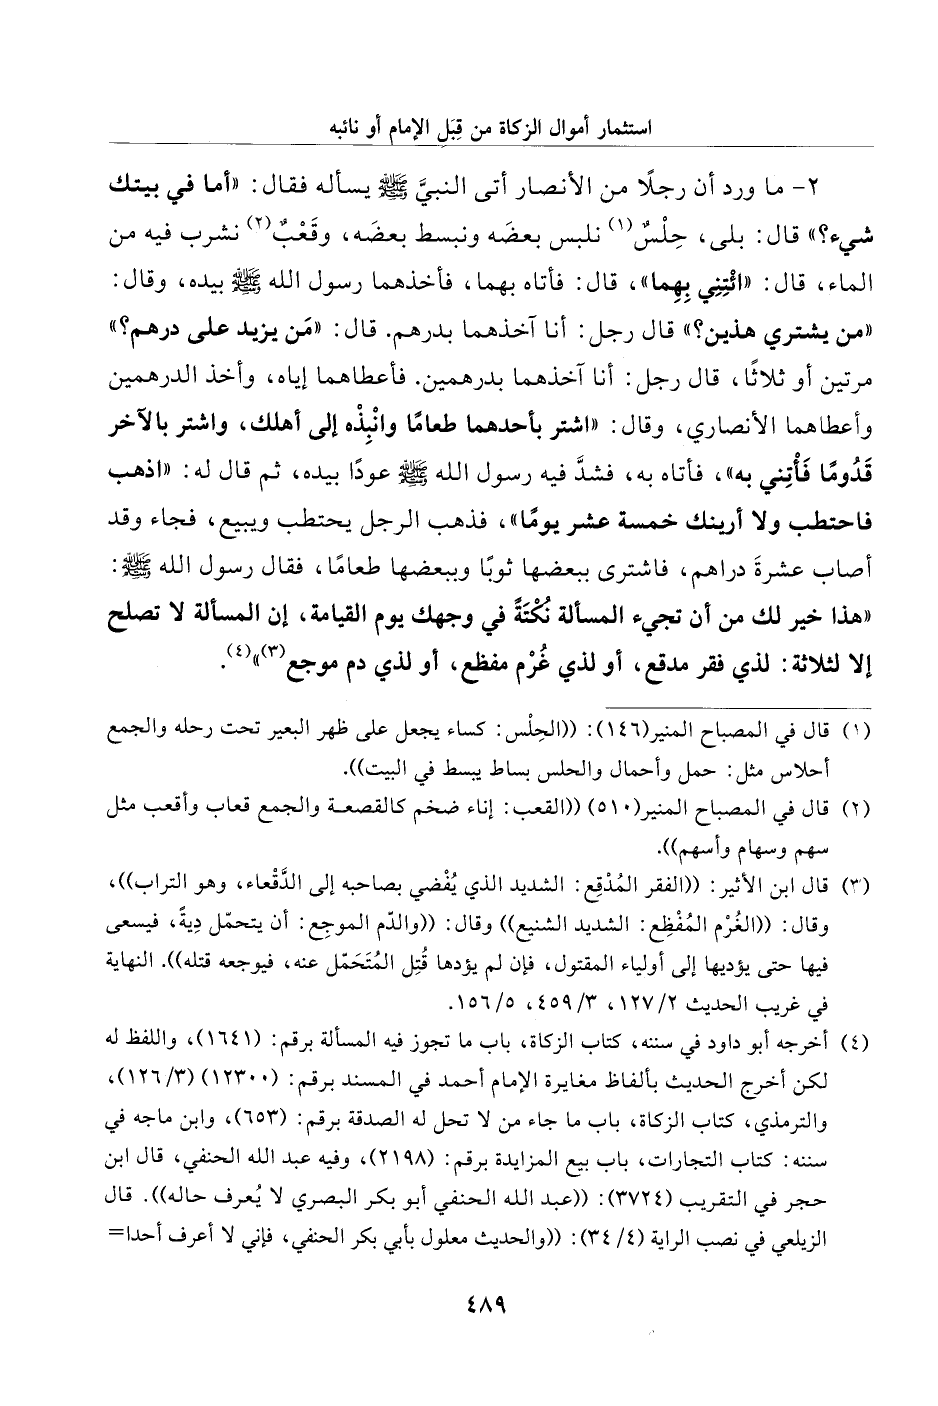 استثمار أموال الزكاة من قِبَل الإمام أو نائبه
٢- ما ورد أن رجلًا من الأنصار أتى النبيَّ ﷺ يسأله فقال: «أما في بيتك
شيء؟» قال: بلى، حِلْسٌ(١) نلبس بعضَه ونبسط بعضَه، وقَعْبٌ(٢) نشرب فيه من
الماء، قال: «ائْتِنِي بِهِما»، قال: فأتاه بهما، فأخذهما رسول الله ﷺ بيده، وقال:
«من يشتري هذين؟» قال رجل: أنا آخذهما بدرهم. قال: «مَن يزيد على درهم؟»
مرتين أو ثلاثًا، قال رجل: أنا آخذهما بدرهمين. فأعطاهما إياه، وأخذ الدرهمين
وأعطاهما الأنصاري، وقال: «اشتر بأحدهما طعامًا وانْبِذْه إلى أهلك، واشتر بالآخر
قَدُومًا فَأْتِني به»، فأتاه به، فشدَّ فيه رسول الله ﷺ عودًا بيده، ثم قال له: «اذهب
فاحتطب ولا أرينك خمسة عشر يومًا»، فذهب الرجل يحتطب ويبيع، فجاء وقد
أصاب عشرةَ دراهم، فاشترى ببعضها ثوبًا وببعضها طعامًا، فقال رسول الله ﷺ:
«هذا خير لك من أن تجيء المسألة نُكْتَةً في وجهك يوم القيامة، إن المسألة لا تصلح
إلا لثلاثة: لذي فقر مدقع، أو لذي غُرْم مفظع، أو لذي دم موجع(٣)»(٤).
(١) قال في المصباح المنير(١٤٦): ((الحِلْس: كساء يجعل على ظهر البعير تحت رحله والجمع
أحلاس مثل: حمل وأحمال والحلس بساط يبسط في البيت)).
(٢) قال في المصباح المنير(٥١٠) ((القعب: إناء ضخم كالقصعة والجمع قعاب وأقعب مثل
سهم وسهام وأسهم)).
(٣) قال ابن الأثير: ((الفقر المُدْقِع: الشديد الذي يُفْضي بصاحبه إلى الدَّقْعاء، وهو التراب))،
وقال: ((الغُرْم المُفْظِع: الشديد الشنيع)) وقال: ((والدّم الموجِع: أن يتحمّل دِيةً، فيسعى
فيها حتى يؤديها إلى أولياء المقتول، فإن لم يؤدها قُتِل المُتَحَمّل عنه، فيوجعه قتله)). النهاية
في غريب الحديث ١٢٧/٢، ٤٥٩/٣، ١٥٦/٥.
(٤) أخرجه أبو داود في سننه، كتاب الزكاة، باب ما تجوز فيه المسألة برقم: (١٦٤١)، واللفظ له
لكن أخرج الحديث بألفاظ مغايرة الإمام أحمد في المسند برقم: (١٢٣٠٠) (١٢٦/٣)،
والترمذي، كتاب الزكاة، باب ما جاء من لا تحل له الصدقة برقم: (٦٥٣)، وابن ماجه في
سننه: كتاب التجارات، باب بيع المزايدة برقم: (٢١٩٨)، وفيه عبد الله الحنفي، قال ابن
حجر في التقريب (٣٧٢٤): ((عبد الله الحنفي أبو بكر البصري لا يُعرف حاله)). قال
الزيلعي في نصب الراية (٣٤/٤): ((والحديث معلول بأبي بكر الحنفي، فإني لا أعرف أحدا=
٤٨٩